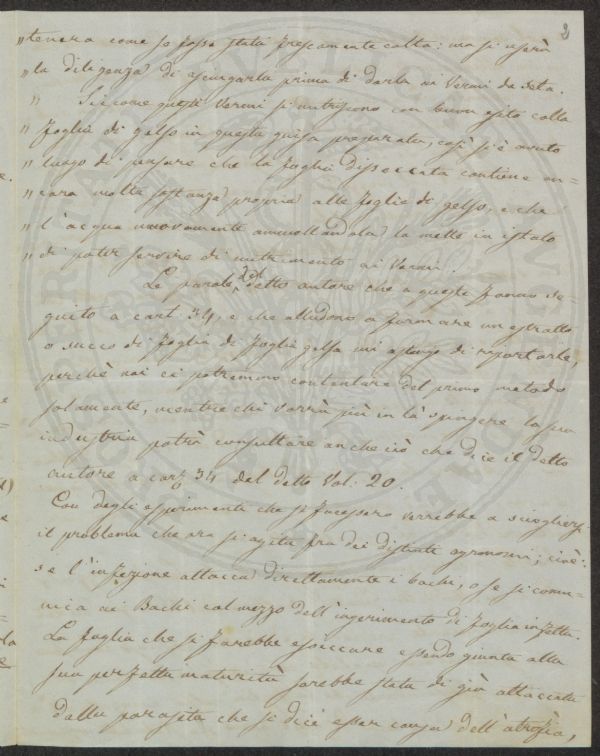 2
"tenera come se fosse stata frescamente colta: ma si userà
"la diligenza di asciugarla prima di darla ai Vermi da seta.
" Siccome questi Vermi si nutriscono con buon esito colla
"foglia di gelso in questa guisa preparata, così si è avuto
"luogo di pensare che la foglia disseccata contiene an-
"cora molta sostanza propria alle foglie di gelso, e che
"l'acqua nuovamente ammollandola la mette in istato
"di poter servire di nutrimento ai Vermi.
Le parole del detto autore che a queste fanno se-
guito a cart. 34, e che alludono a formare un estratto
o succo di foglia di foglia gelso mi astengo di riportarle,
perchè noi ci potremmo contentare del primo metodo
solamente, mentre chi vorrà più in là spingere la sua
industria potrà consultare anche ciò che dice il detto
autore a cart. 34 del detto Vol: 20.
Con degli esperimenti che si facessero verrebbe a sciogliersi
il problema che ora si agita fra dei distinti agronomi; cioè:
se l'infezione attacca direttamente i bachi, o se si comu-
nica ai Bachi col mezzo dell'ingerimento di foglia infetta.
La foglia che si farebbe essiccare essendo giunta alla
sua perfetta maturità sarebbe stata di già attaccata
dalla parasita che si dice esser causa dell'atrofia,